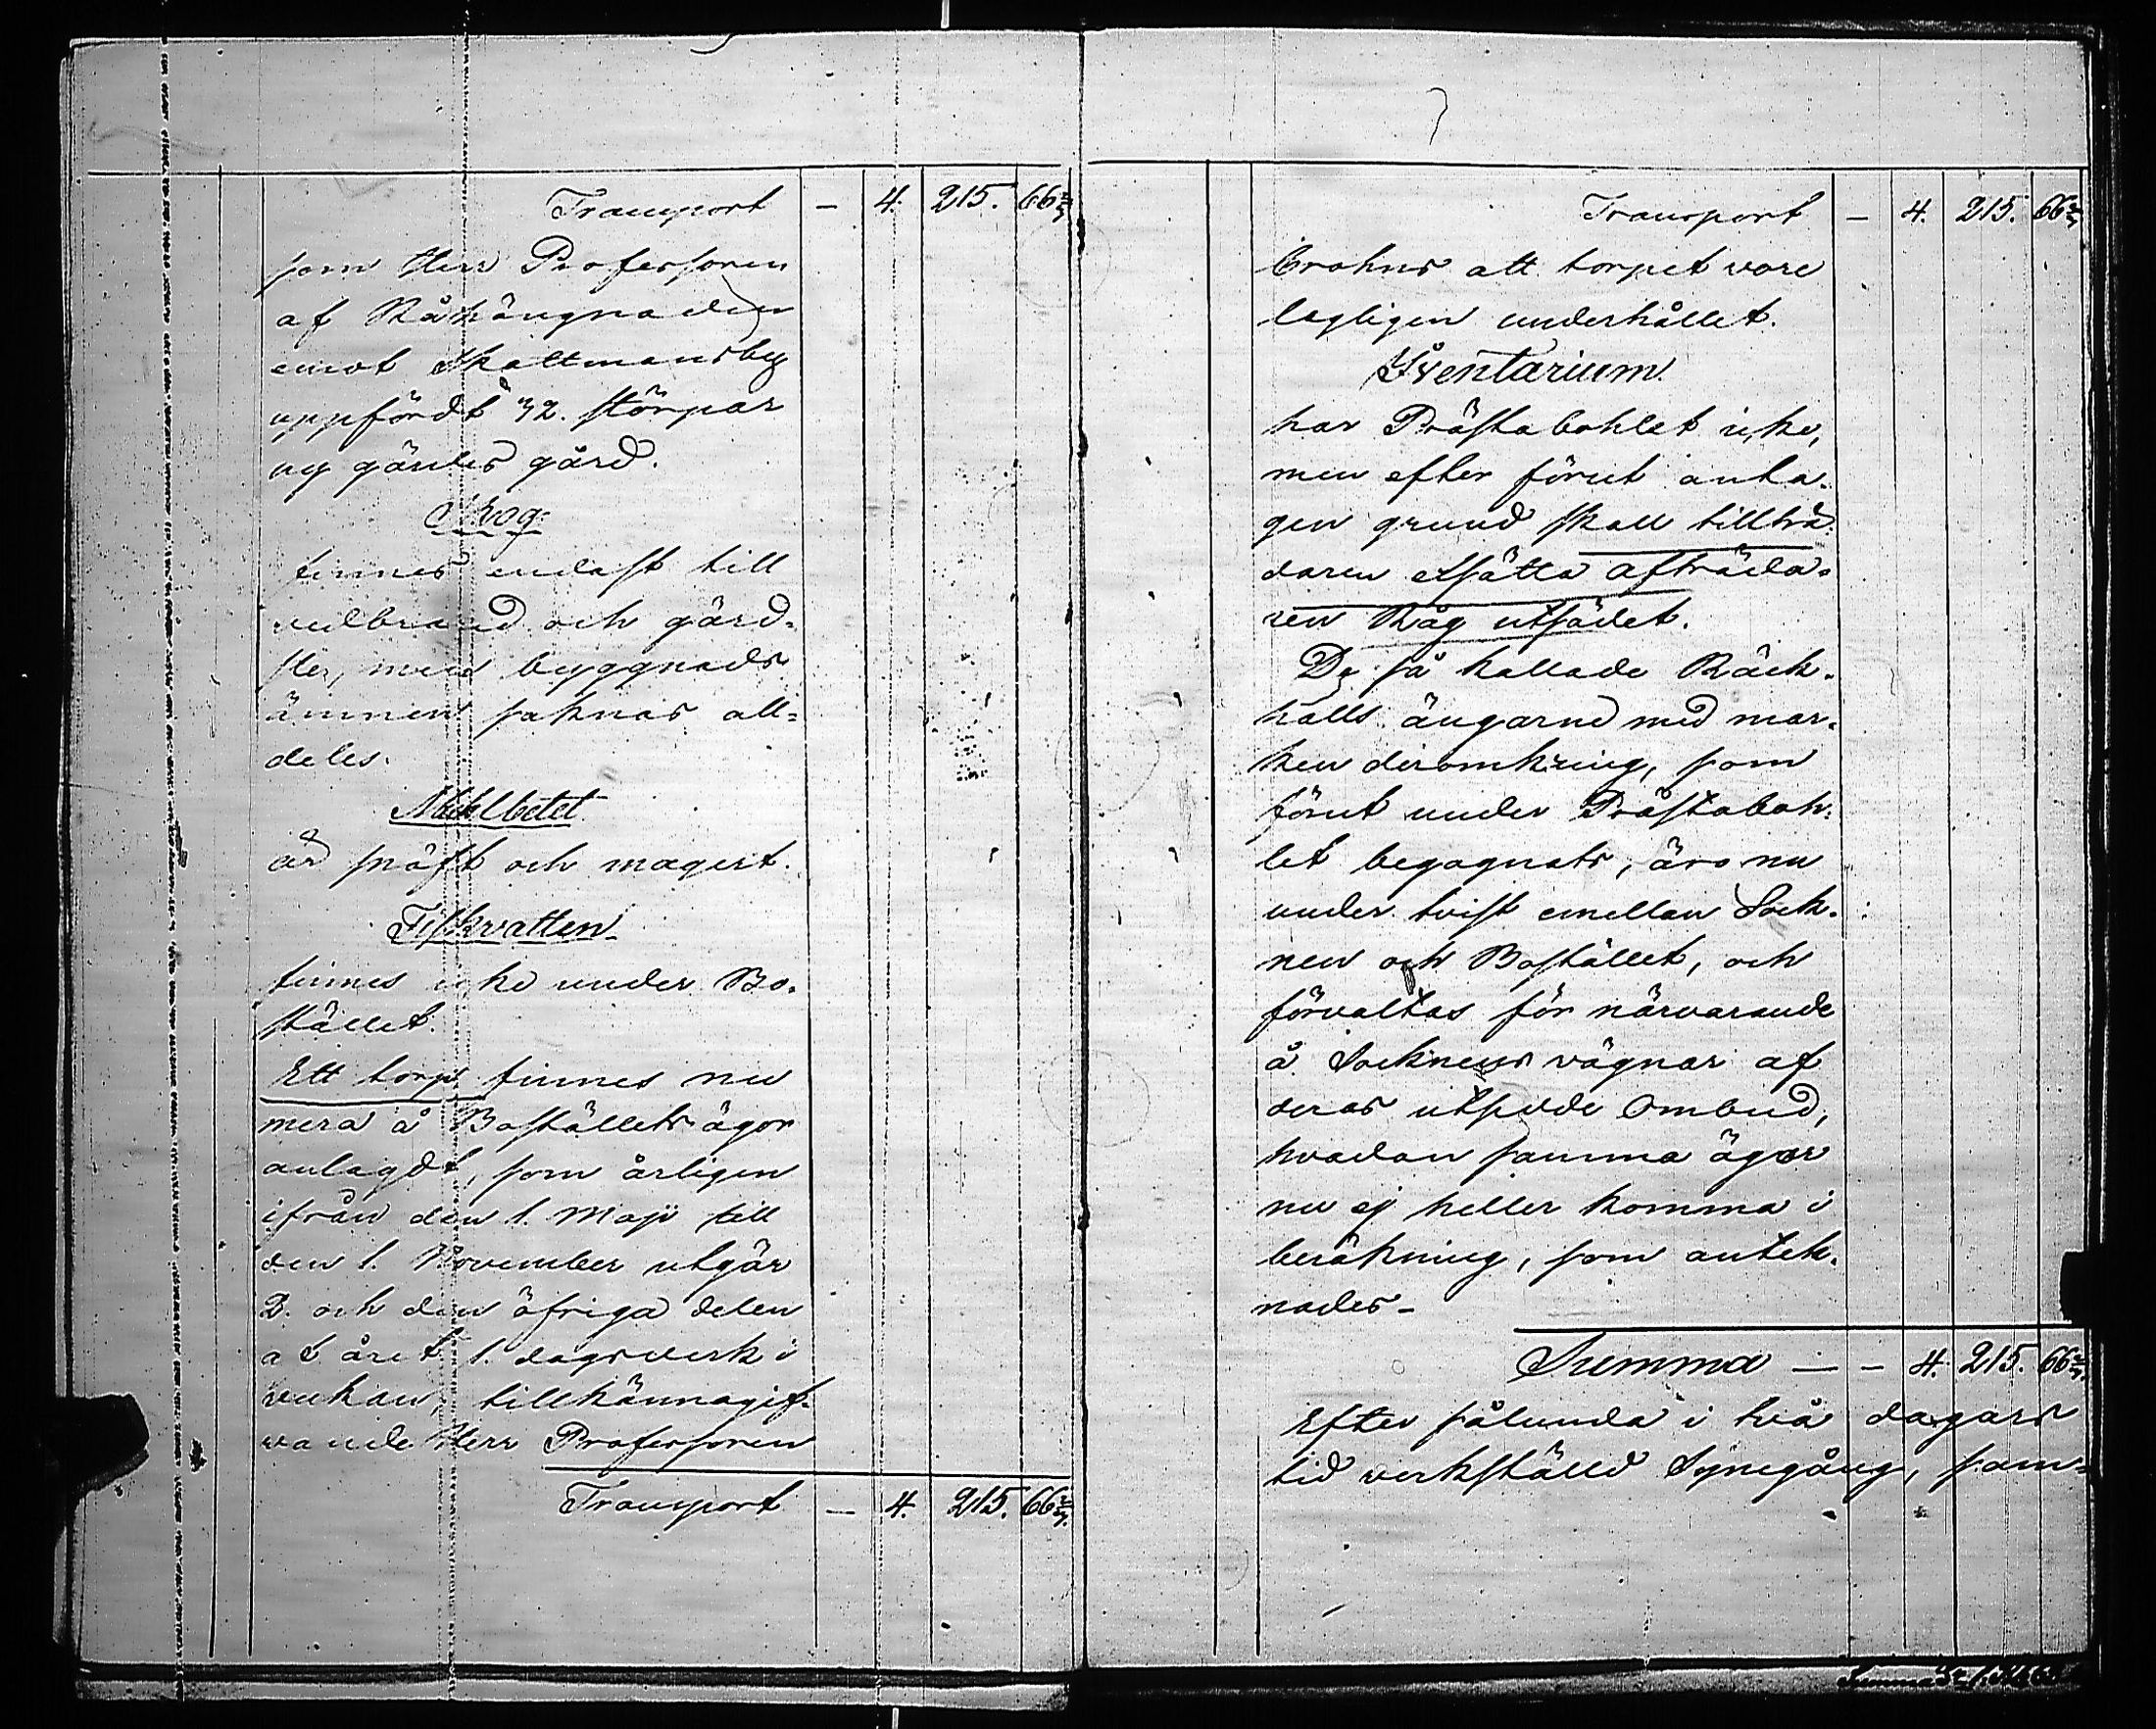 Transport — 4. 215. 66 2/3
som Herr Professoren
af Råhängnaden
emot Skattmansby
uppfördt 32. störpar
ny gärdes gård.
Skog
finnes endast till
vedbrand och gärd-
sler, men byggnads
ämnen saknas all-
deles.
Muhlbetet
är snäft och magert.
Fiskvatten
finnes icke under Bo-
stället.
Ett torp finnes nu
mera å Boställets ägor
anlagdt, som årligen
ifrån den 1. Maji till
den 1. November utgör
2. och den öfriga delen
af året 1. dagsverk i
veckan, tillkännagif-
vande Herr Professoren
Transport — 4. 215. 66 2/3.
Transport — 4. 215. 66 2/3
Crohns att torpet vore
lagligen underhållet.
Inventarium.
har Prästabohlet icke,
men efter förut anta-
gen grund skall tillträ-
daren ersätta afträda-
ren Råg utsädet.
De så kallade Räck-
halls ängarne med mar-
ken deromkring, som
förut under Prästaboh-
let begagnats, äro nu
under tvist emellan Sock-
nen och Bostället, och
förvaltas för närvarande
å Socknens vägnar af
deras utsedde Ombud,
hvadan samma ägor
nu ej heller komma i
beräkning, som anteck-
nades –
Summa — – 4. 215. 66 2/3.
Efter sålunda i två dagars
tid verkställd Synegång, sam-